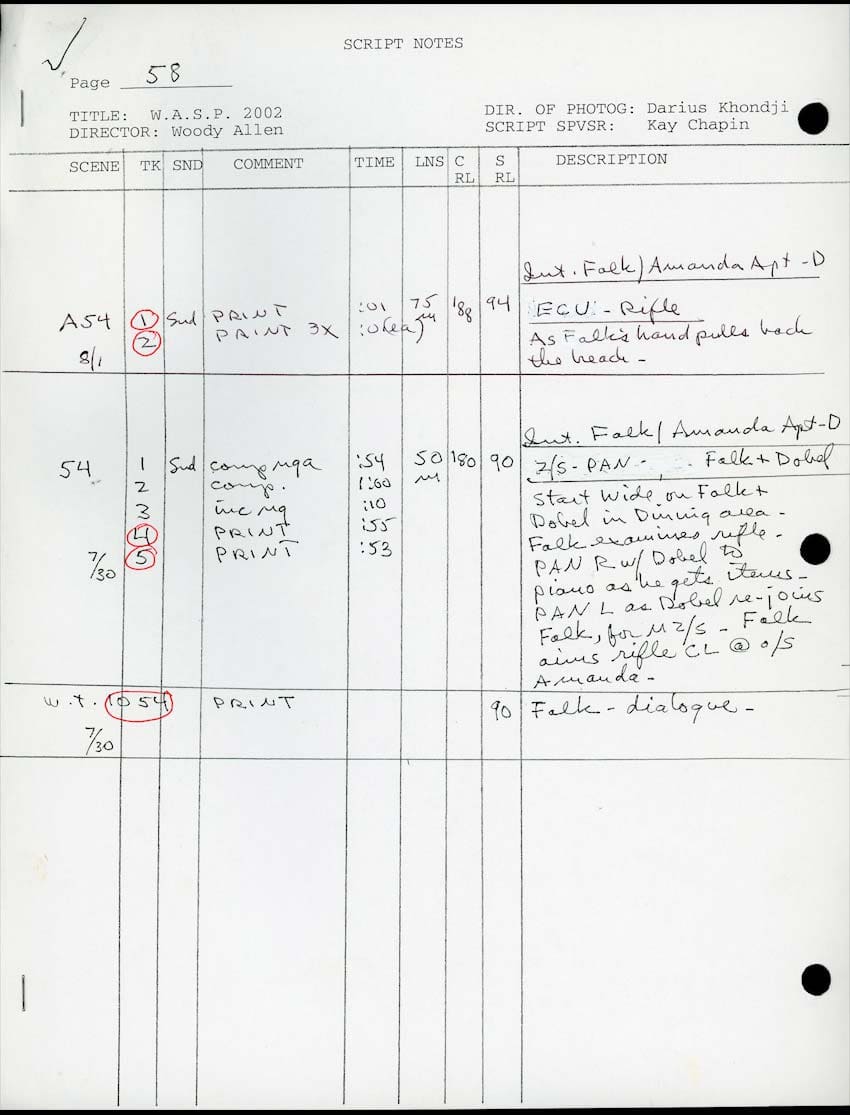 SCRIPT NOTES
Page 58
TITLE: W.A.S.P. 2002
DIR. OF PHOTOG: Darius Khondji
DIRECTOR: Woody Allen
SCRIPT SPVSR: Kay Chapin
SCENE TK SND COMMENT TIME LNS C RL S RL DESCRIPTION
Int. Falk/Amanda Apt-D
A54 1 Snd PRINT :01 75 M 188 94 ECU - Rifle
2 PRINT 3X :01(ea) As Falk's hand pulls back
8/1 the breach -
Int. Falk/Amanda Apt-D
54 1 Snd comp nga :54 50 M 180 90 2/S-PAN- Falk + Dobel
2 comp. 1:00 Start wide on Falk +
3 inc ng :10 Dobel in Dining area -
4 PRINT :55 Falk examines rifle -
7/30 5 PRINT :53 PAN R w/ Dobel to
piano as he gets items -
PAN L as Dobel re-joins
Falk, for M 2/S - Falk
aims rifle CL @ o/S
Amanda -
w.t. 1054 PRINT 90 Falk - dialogue -
7/30